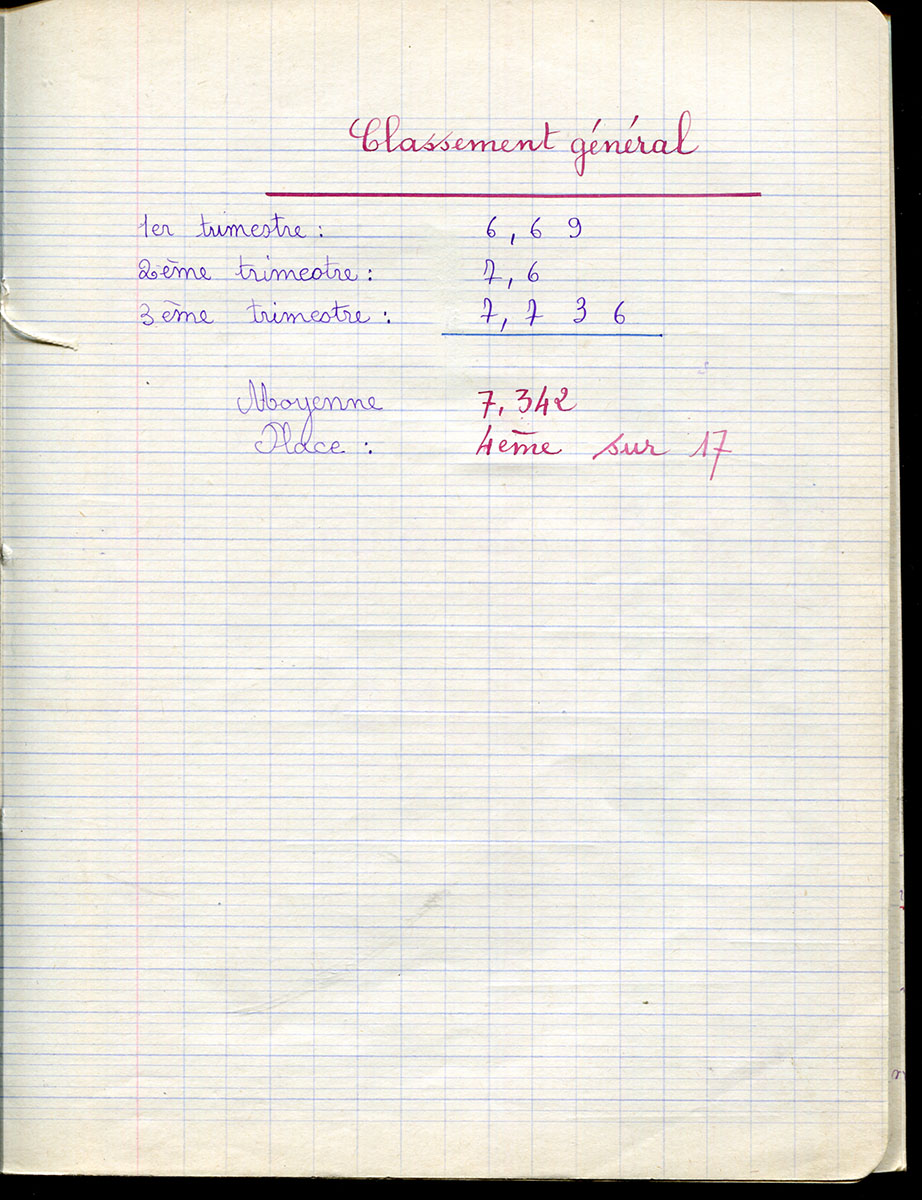 Classement général
1er trimestre : 6,69
2ème trimestre : 7,6
3ème trimestre : 7,736
Moyenne 7,342
Place : 4ème sur 17